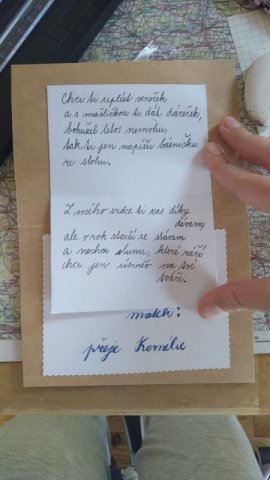 Chci ti uplést veneček
a s mašličkou ti dát dáreček,
bohužel letos nemohu,
tak ti jen napíši básničku
ve slohu.
Z mého srdce ti zas díky
dávám,
ale o rok starší se stávám
a nechci slunce, které září
chci jen úsměv na tvé
tváři.
matek!
přeje Kornélie